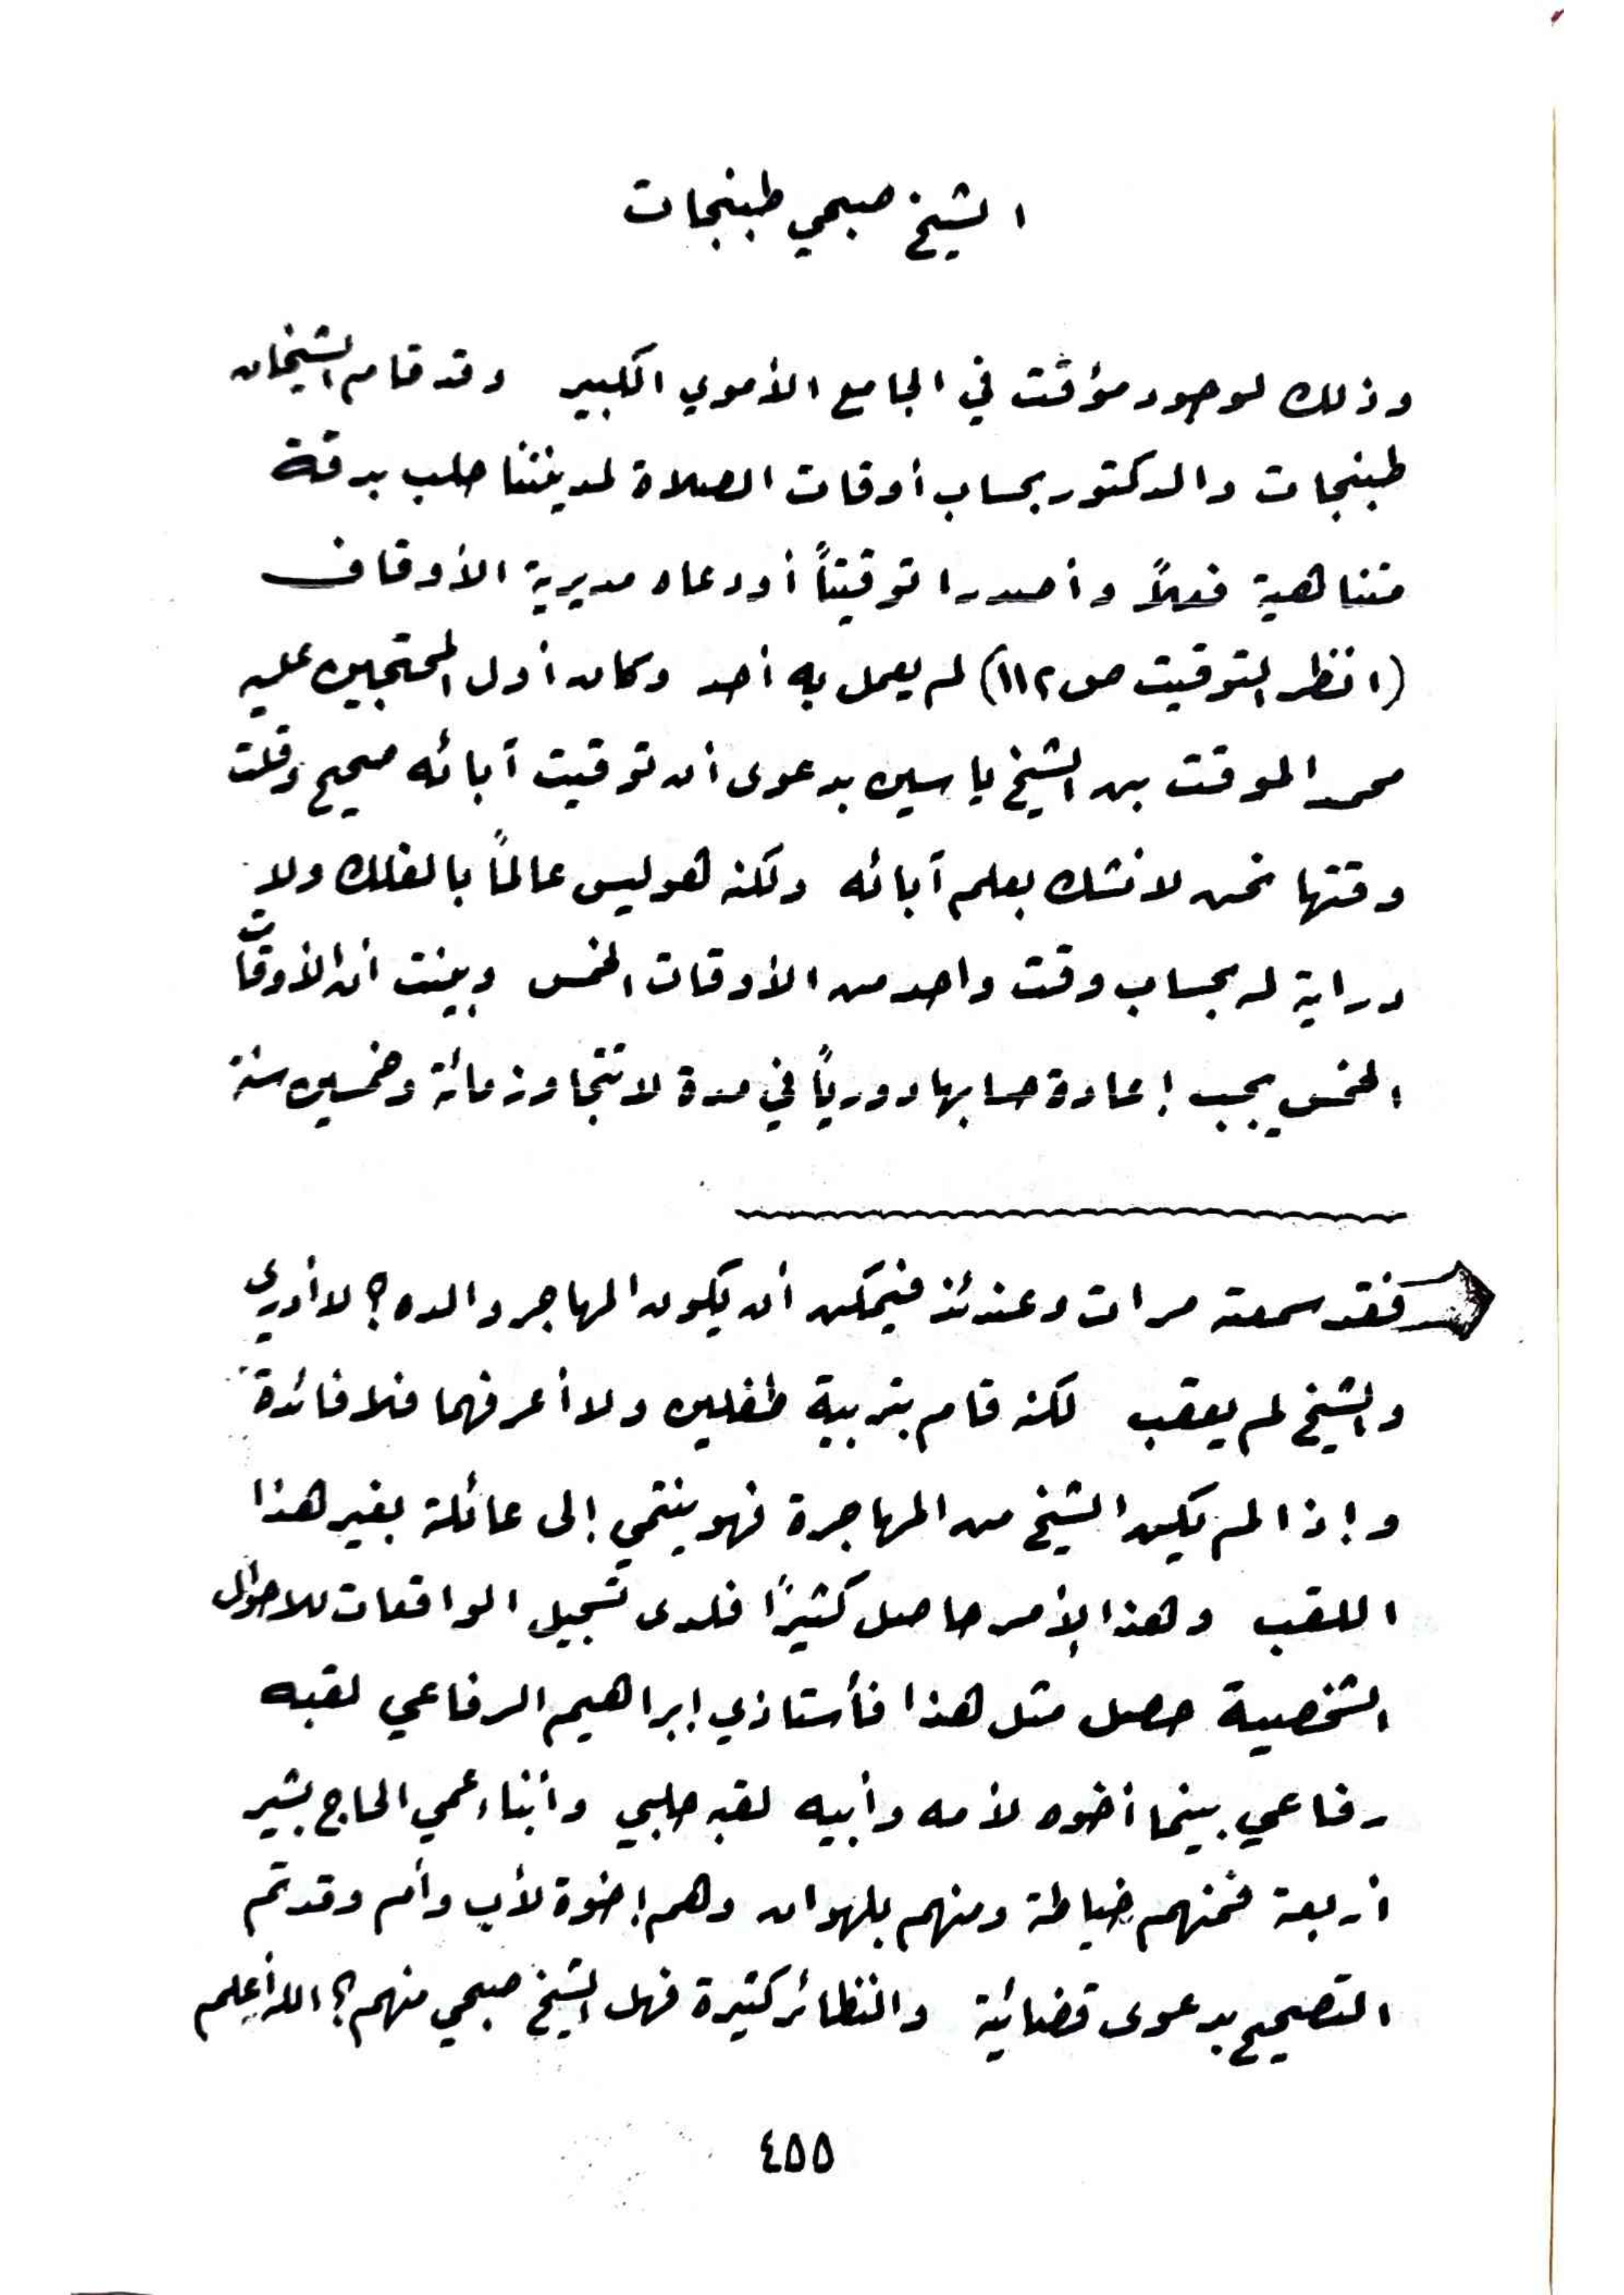 الشيخ صبحي طبنجات
وذلك لوجود مؤقت في الجامع الأموي الكبير وقد قام الشيخان
طبنجات والدكتور بحساب أوقات الصلاة لمدينتنا حلب بدقة
متناهية فعلاً وأصدرا توقيتاً أودعاه مديرية الأوقاف
(انظر التوقيت ص ١١٢) لم يعمل به أحد وكان أول المحتجين عليه
محمد الموقت بن الشيخ ياسين بدعوى أن توقيت آبائه صحيح وقلت
وقتها نحن لا نشك بعلم آبائه ولكنه هو ليس عالماً بالفلك ولا
دراية له بحساب وقت واحد من الأوقات الخمس وبينت أن الأوقات
الخمس يجب إعادة حسابها دورياً في مدة لا تتجاوز مائة وخمسين سنة
فقد سمعته مرات وعندئذ فيمكن أن يكون المهاجر والده؟ لا أدري
والشيخ لم يعقب لكنه قام بتربية طفلين ولا أعرفهما فلا فائدة
وإذا لم يكن الشيخ من المهاجرة فهو ينتمي إلى عائلة بغير هذا
اللقب وهذا الأمر حاصل كثيراً فلدى تسجيل الواقعات للاحوال
الشخصية حصل مثل هذا فأستاذي إبراهيم الرفاعي لقبه
رفاعي بينما أخوه لأمه وأبيه لقبه حلبي وأبناء عمي الحاج بشير
أربعة فمنهم خياطة ومنهم بلهوان وهم إخوة لأب وأم وقد تم
التصحيح بدعوى قضائية والنظائر كثيرة فهل الشيخ صبحي منهم؟ الله أعلم
٤٥٥